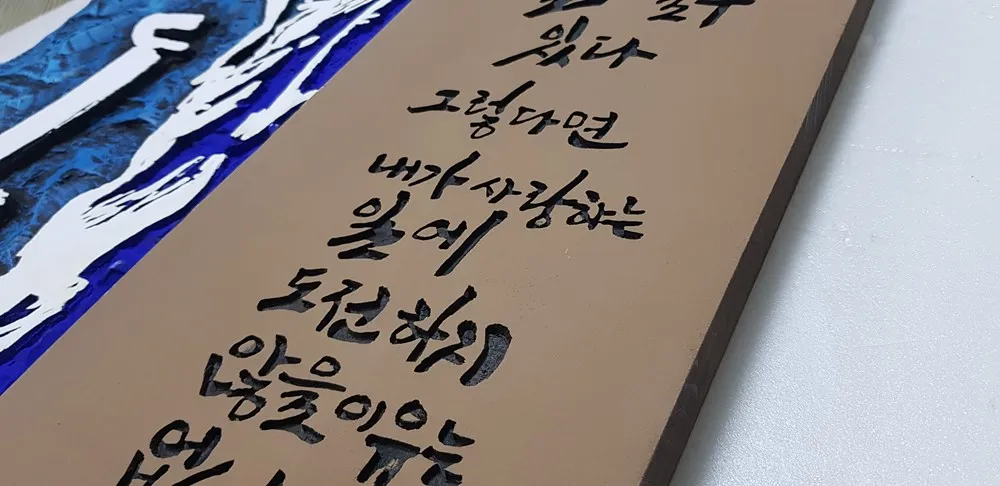 있다
그렇다면
내가 사랑하는
일에
도전하지
않을 이유는